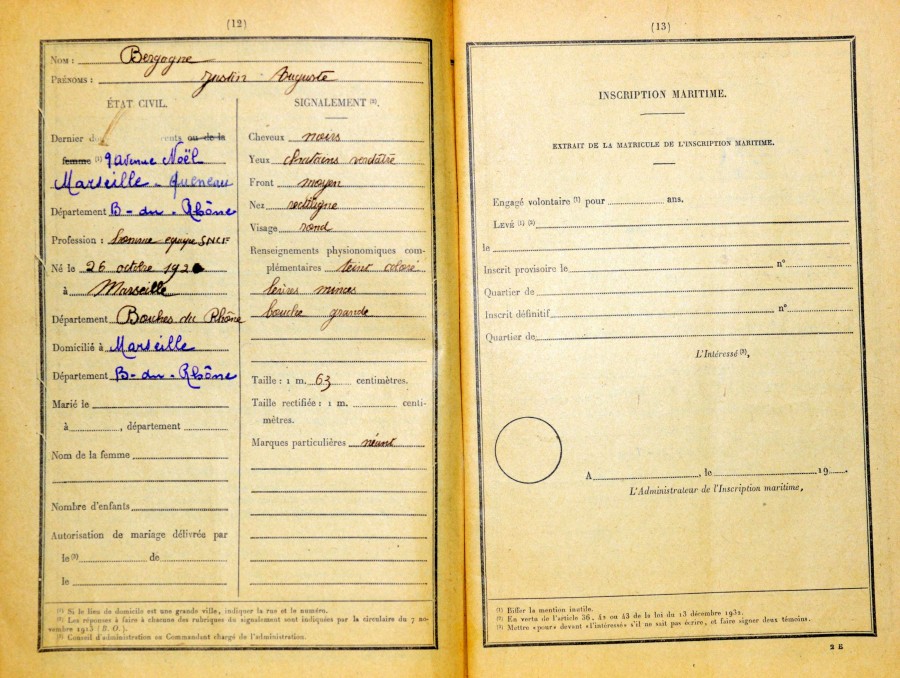 (12)
NOM : Bergogne
PRÉNOMS : Justin Auguste
ÉTAT CIVIL.
Dernier do ents ou de la
femme (1) 9 avenue Noël
Marseille -
Département B-du-Rhône
Profession : homme équipe SNCF
Né le 26 octobre 192
à Marseille
Département Bouches du Rhône
Domicilié à Marseille
Département B-du-Rhône
Marié le
à , département
Nom de la femme
Nombre d'enfants
Autorisation de mariage délivrée par
le (3) de
le
SIGNALEMENT (2).
Cheveux noirs
Yeux chatains verdatre
Front moyen
Nez rectiligne
Visage rond
Renseignements physionomiques com-
plémentaires teint coloré
lèvres minces
bouche grande
Taille : 1 m. 63 centimètres.
Taille rectifiée : 1 m. centi-
mètres.
Marques particulières néant
(1) Si le lieu de domicile est une grande ville, indiquer la rue et le numéro.
(2) Les réponses à faire à chacune des rubriques du signalement sont indiquées par la circulaire du 7 no-
vembre 1913 (B. O.).
(3) Conseil d'administration ou Commandant chargé de l'administration.
(13)
INSCRIPTION MARITIME.
EXTRAIT DE LA MATRICULE DE L'INSCRIPTION MARITIME.
Engagé volontaire (1) pour ans.
LEVÉ (1) (2)
le
Inscrit provisoire le n°
Quartier de
Inscrit définitif n°
Quartier de
L'Intéressé (3),
A , le 19 .
L'Administrateur de l'Inscription maritime,
(1) Biffer la mention inutile.
(2) En vertu de l'article 36, 42 ou 43 de la loi du 13 décembre 1932.
(3) Mettre «pour» devant «l'intéressé» s'il ne sait pas écrire, et faire signer deux témoins.
2 E